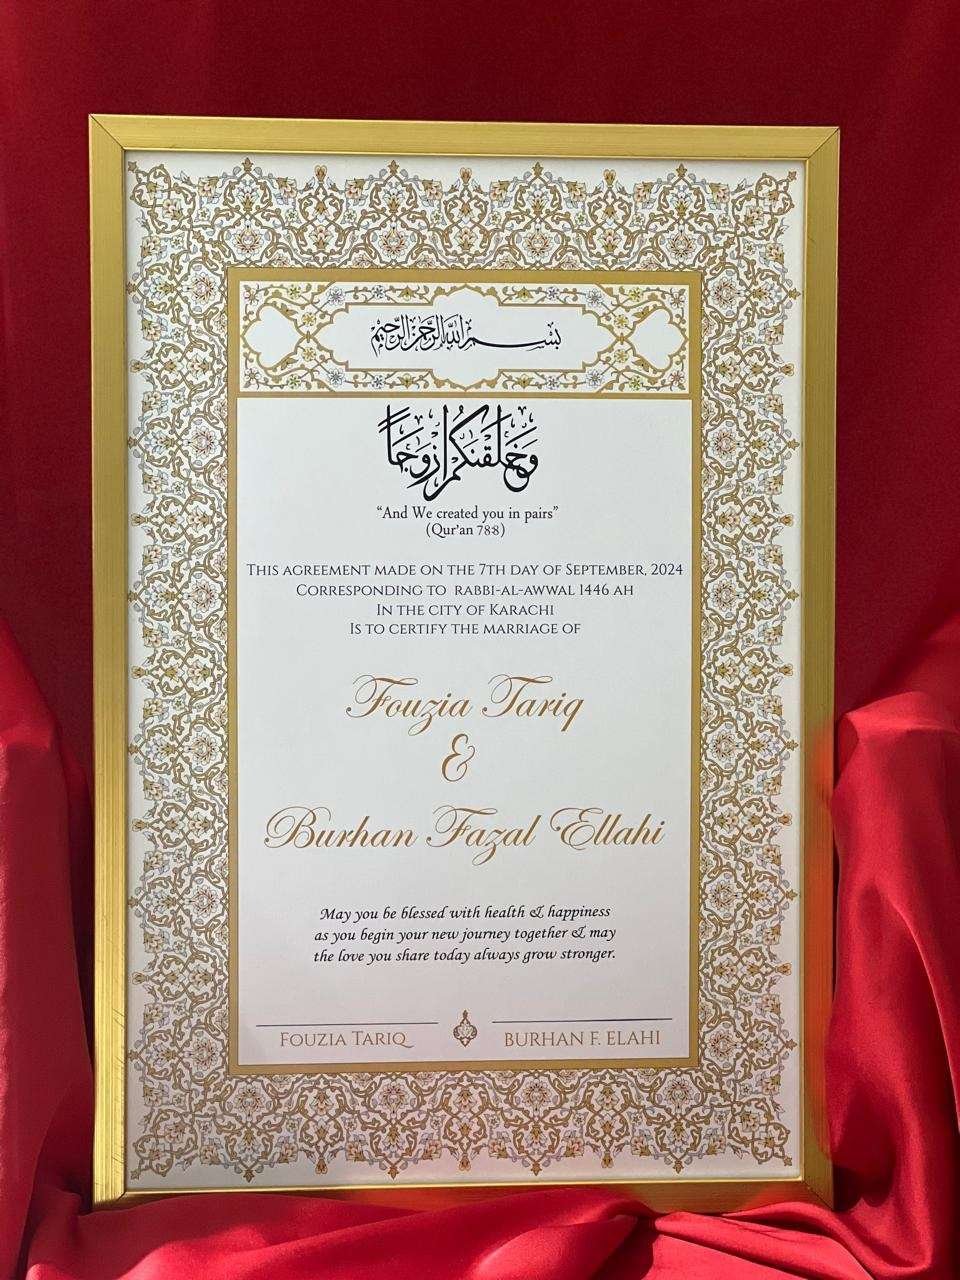 بسم الله الرحمن الرحيم
وَخَلَقْنَكُمْ أَزْوَجًا
“And We created you in pairs”
(Qur'an 78:8)
This agreement made on the 7th day of September, 2024
Corresponding to rabbi-al-awwal 1446 ah
In the city of Karachi
Is to certify the marriage of
Fouzia Tariq
&
Burhan Fazal Ellahi
May you be blessed with health & happiness
as you begin your new journey together & may
the love you share today always grow stronger.
Fouzia Tariq
Burhan F. Elahi